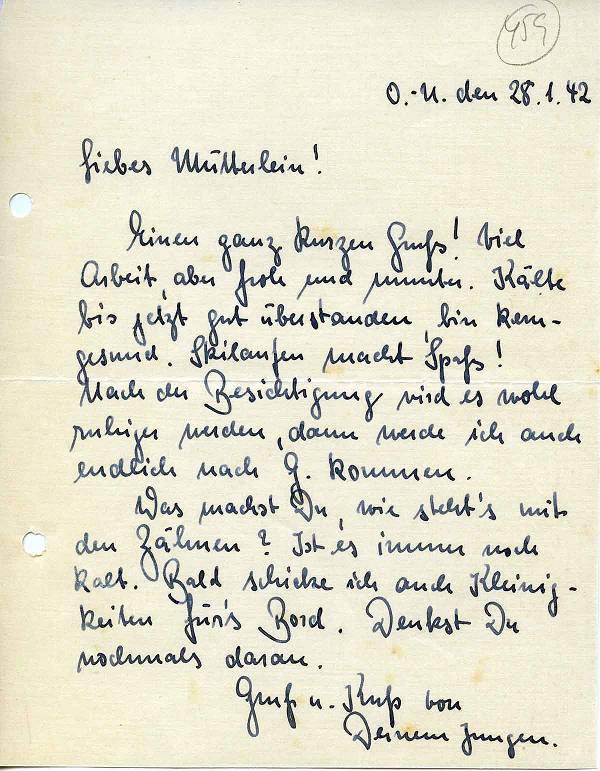 459
O.-U. den 28.1.42
Liebes Mütterlein!
Einen ganz kurzen Gruß! Viel
Arbeit, aber froh und munter. Kälte
bis jetzt gut überstanden, bin kern-
gesund. Skilaufen macht Spaß!
Nach der Besichtigung wird es wohl
ruhiger werden, dann werde ich auch
endlich nach G. kommen.
Was machst Du, wie steht's mit
den Zähnen? Ist es immer noch
kalt. Bald schicke ich auch Kleinig-
keiten für's Bord. Denkst Du
nochmals daran.
Gruß u. Kuß von
Deinem Jungen.